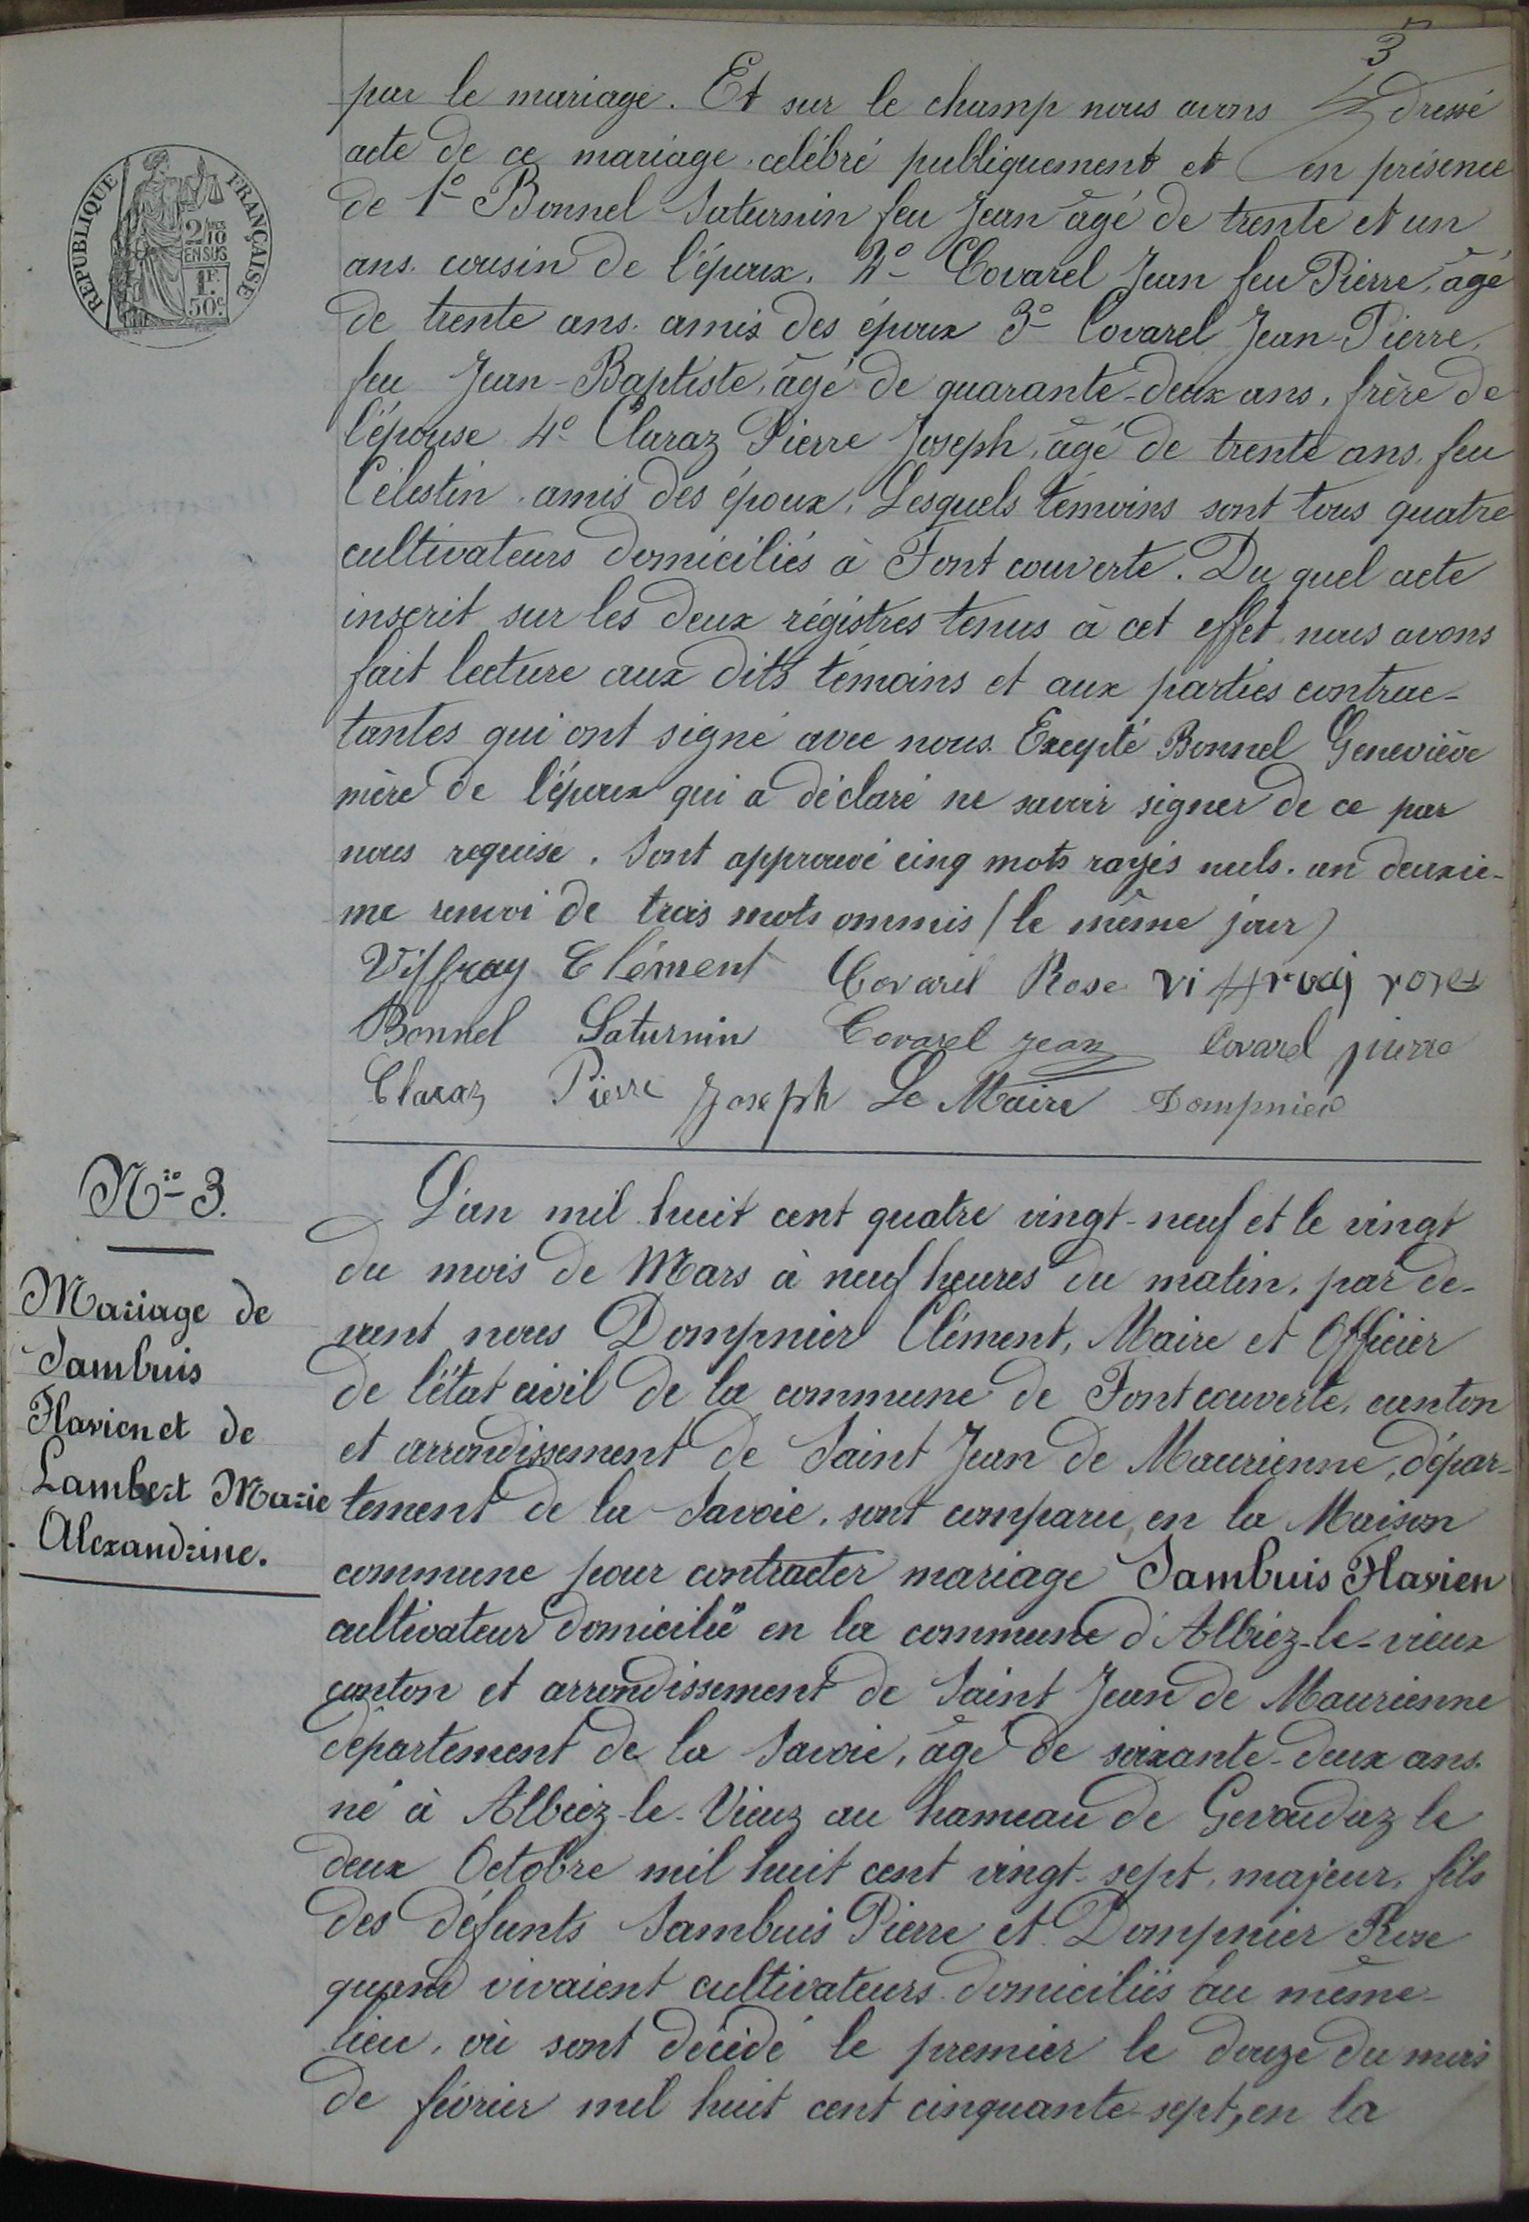 3
par le mariage. Et sur le champ nous avons dressé
acte de ce mariage célébré publiquement et en présence
de 1° Bonnel Saturnin feu Jean âgé de trente et un
ans. cousin de l'époux. 2° Covarel Jean feu Pierre, âgé
de trente ans. amis des époux 3° Covarel Jean-Pierre,
feu Jean-Baptiste, âgé de quarante-deux ans, frère de
l'épouse 4° Claraz Pierre Joseph, âgé de trente ans, feu
Célestin amis des époux. Lesquels témoins sont tous quatre
cultivateurs domiciliés à Font couverte. Du quel acte
inscrit sur les deux régistres tenus à cet effet nous avons
fait lecture aux dits témoins et aux parties contrac-
tantes qui ont signé avec nous. Exepté Bonnel Geneviève
mère de l'époux qui a déclaré ne savoir signer de ce par
nous requise. Sont approuvé cinq mots rayés nuls. un deuxiè-
me renvoi de trois mots ommis (le même jour)
Viffray Clément Covarel Rose viffray
Bonnel Saturnin Covarel jean Covarel pierre
Claraz Pierre Joseph Le Maire Dompnier
REPUBLIQUE FRANÇAISE
2/10
EN SUS
1F.
50c.
Nro 3.
Mariage de
Sambuis
Flavien et de
Lambert Marie
Alexandrine.
L'an mil huit cent quatre vingt-neuf et le vingt
du mois de Mars à neuf heures du matin, par de-
vant nous Dompnier Clément, Maire et Officier
de l'état civil de la commune de Fontcouverte, canton
et arrondissement de Saint Jean de Maurienne, dépar-
tement de la Savoie, sont comparu en la Maison
commune pour contracter mariage Sambuis Flavien
cultivateur domicilié en la commune d'Albiez-le-vieux
canton et arrondissement de Saint Jean de Maurienne
département de la Savoie, âgé de soixante-deux ans.
né à Albiez-le-Vieux au hameau de Gevoudaz le
deux Octobre mil huit cent vingt-sept, majeur, fils
des défunts Sambuis Pierre et Dompnier Rose
quand vivaient cultivateurs domiciliés au même-
lieu, où sont décédé le premier le douze du mois
de février mil huit cent cinquante-sept, en la